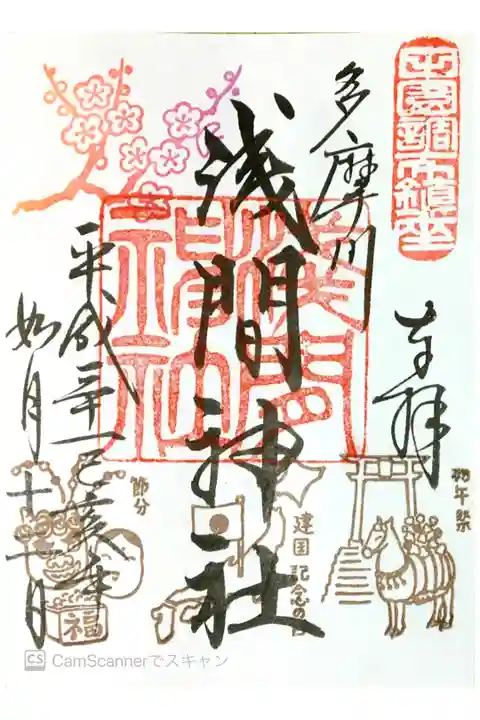 田園調布鎮座
奉拝
多摩川
浅間神社
浅間
神社
平成三十一己亥年
如月十一日
初午祭
建国記念の日
節分
福
CS CamScannerでスキャン